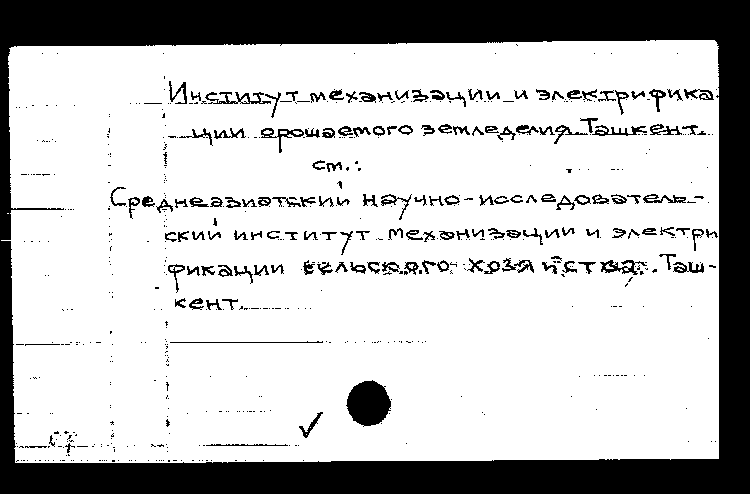 Институт механизации и электрифика-
ции орошаемого земледелия. Ташкент.
см.:
Среднеазиатский научно-исследователь-
ский институт механизации и электри
фикации сельского хозяйства. Таш-
кент.